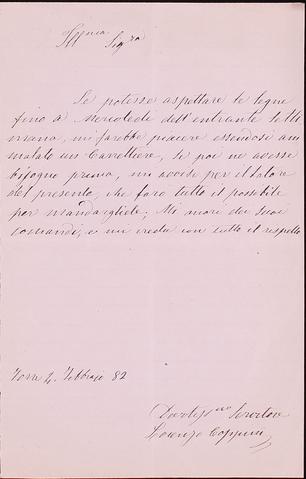 Ill.ma Sig.ra
Se potesse aspettare le legne
fino a Mercoledi dell'entrante setti
mana, mi farebbe piacere essendosi am
malato un Carrettiere, se poi ne avesse
bisogno prima, mi avvisi per il latore
del presente, che farò tutto il possibile
per mandargliele; Mi onori dei suoi
comandi, e mi creda con tutto il rispetto
Torre 2. Febbraio 82
Devotiss.mo Servitore
Lorenzo